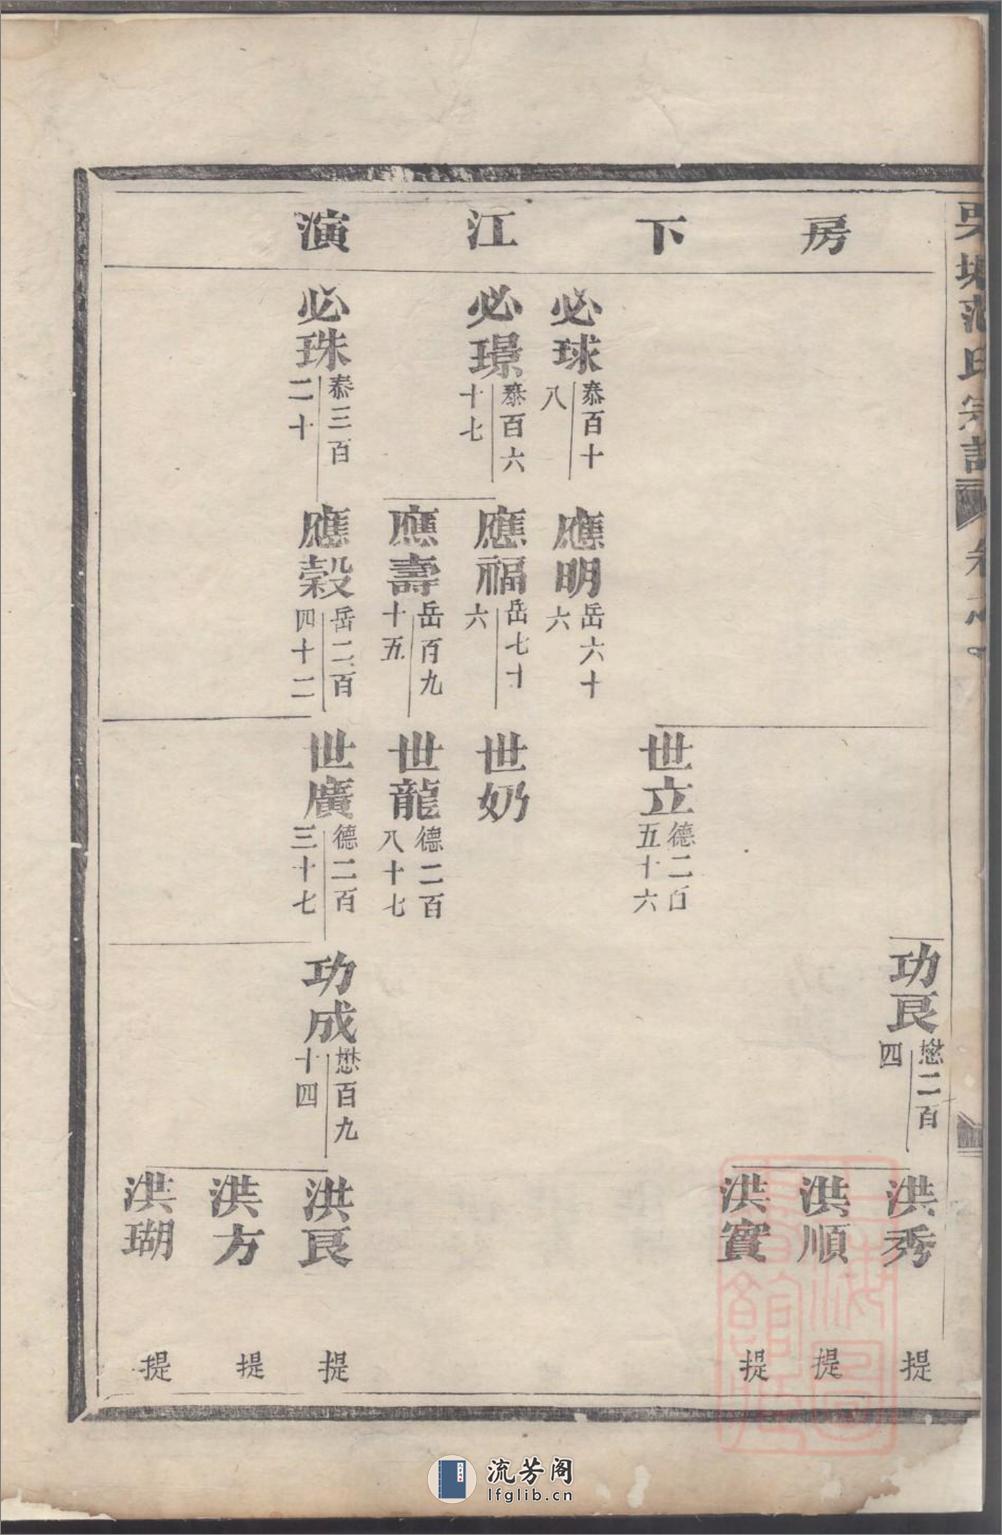 房下江演
必球 泰百十八
必璟 泰百六十七
必珠 泰三百二十
應明 岳六十六
應福 岳七十六
應壽 岳百九十五
應榖 岳二百四十二
世立 德二百五十六
世奶
世龍 德二百八十七
世廣 德二百三十七
功良 懋二百四
功成 懋百九十四
洪秀 提
洪順 提
洪寶 提
洪良 提
洪方 提
洪瑚 提
氏宗譜
流芳阁
lfglib.cn